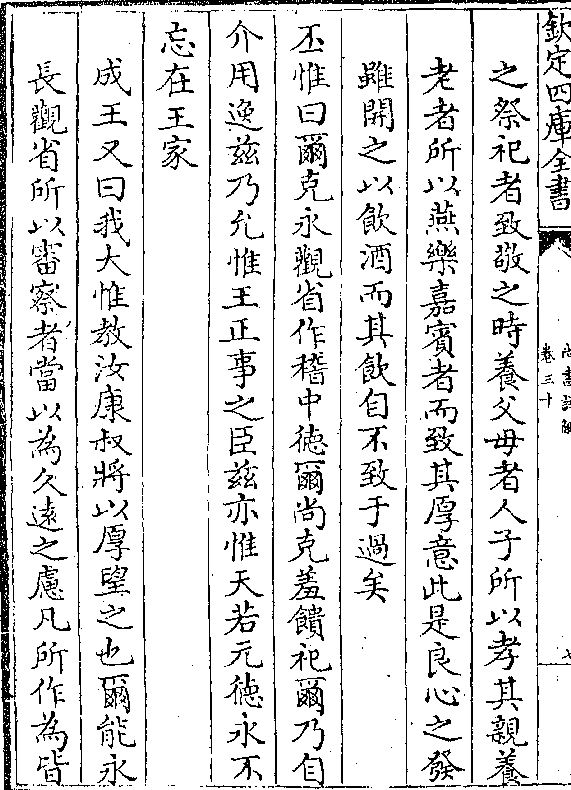 欽定四庫全書
卷三十
之祭祀者致敬之時養父母者人子所以孝其親養
老者所以燕樂嘉賓者而致其厚意此是良心之發
雖開之以飲酒而其飲自不致于過矣
丕惟曰爾克永觀省作稽中德爾尚克羞饋祀爾乃自
介用逸茲乃允惟王正事之臣茲亦惟天若元德永不
忘在王家
成王又曰我大惟教汝康叔將以厚望之也爾能永
長觀省所以審察者當以為久遠之慮凡所作為皆